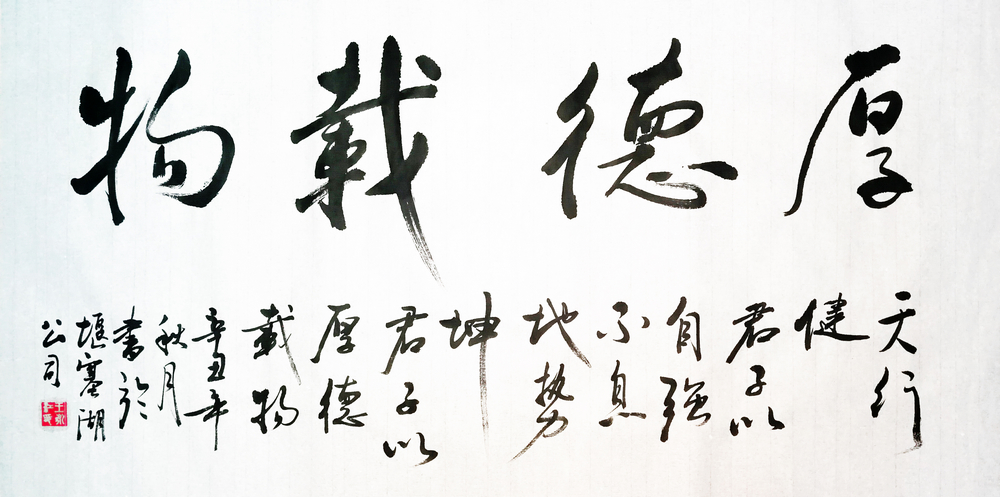 厚德載物
天行
健
君子以
自強
不息
地势
坤
君子以
厚德
載物
辛丑年
秋月
書於
堰塞湖
公司